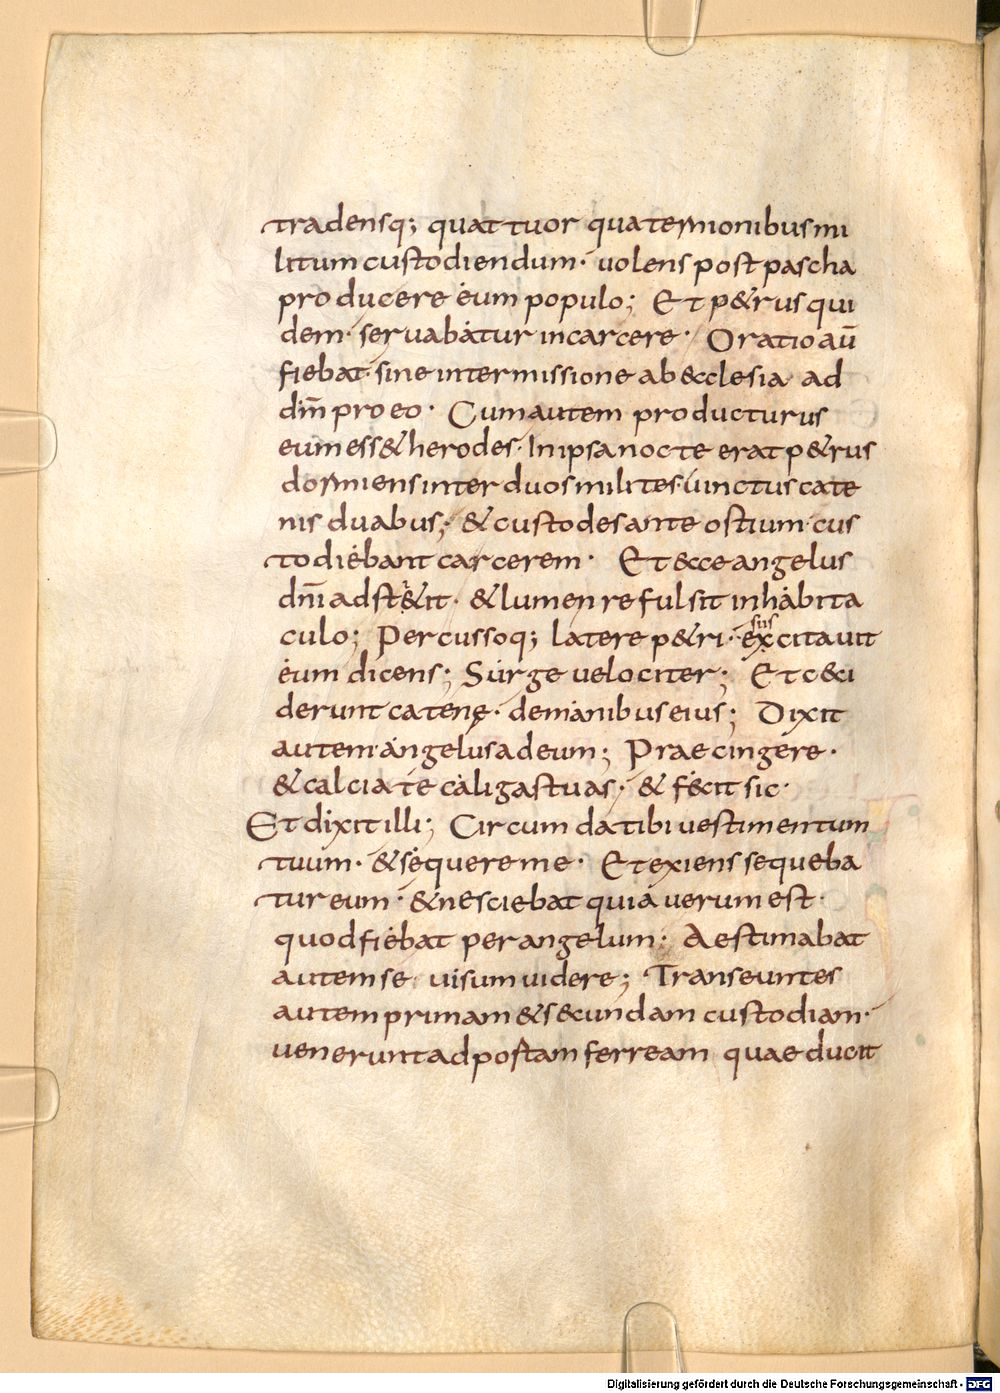 tradensq; quattuor quaternionibus mi
litum custodiendum· uolens post pascha
producere eum populo; Et p&rus qui
dem· seruabatur incarcere· Oratio aū
fiebat· sine intermissione ab &cclesia ad
dm̄ pro eo· Cum autem producturus
eum ess& herodes· In ipsa nocte erat p&rus
dormiens inter duos milites· uinctus cate
nis duabus; & custodes ante ostium· cus
todiebant carcerem· Et &cce angelus
dn̄i adst&it· & lumen refulsit inhabita
culo; Percussoq; latere p&ri· excitauit
sus
eum dicens; Surge uelociter; Et c&ci
derunt catenę· demanibus eius; Dixit
autem· angelus ad eum; Praecingere·
& calcia te caligas tuas· & f&cit sic·
Et dixit illi; Circumda tibi uestimentum
tuum· & sequere me· Et exiens sequeba
tur eum· & nesciebat quia uerum est·
quod fiebat per angelum· Aestimabat
autem se uisum uidere; Transeuntes
autem primam & s&cundam custodiam·
uenerunt ad portam ferream quae ducit
Digitalisierung gefördert durch die Deutsche Forschungsgemeinschaft - DFG